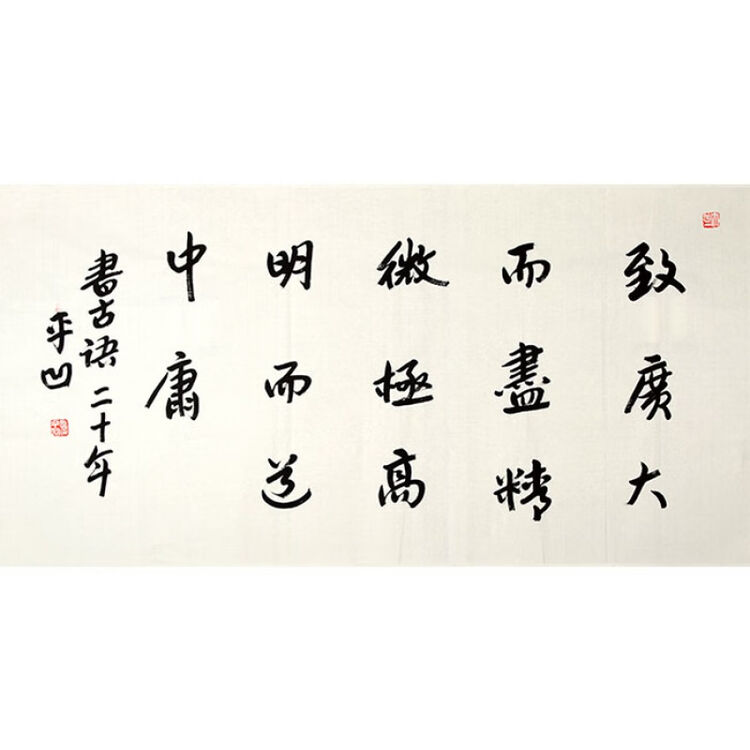 致廣大
而盡精
微極高
明而道
中庸
書古語二十年
平凹